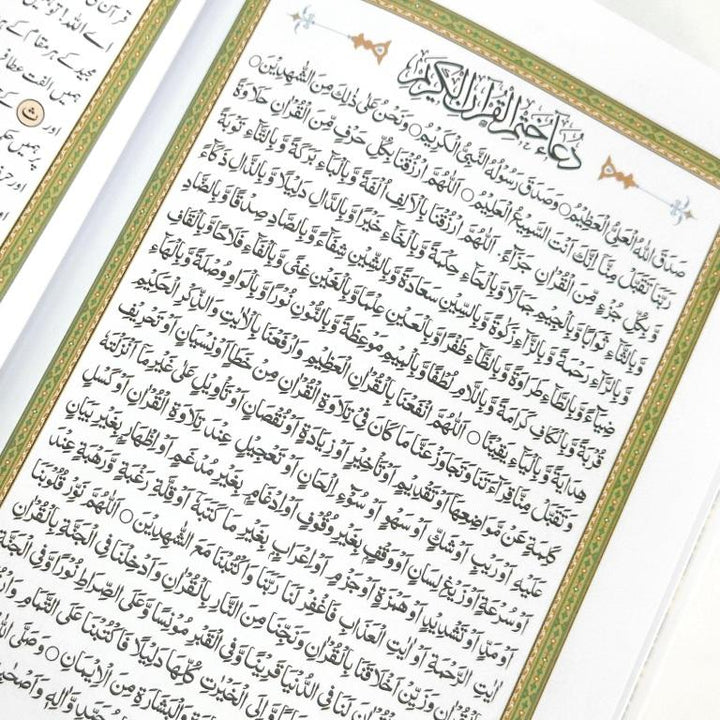 دُعَاءُ خَتْمِ الْقُرْاٰنِ الْكَرِيْمِ
صَدَقَ اللهُ الْعَلِيُّ الْعَظِيْمُ○ وَصَدَقَ رَسُوْلُهُ النَّبِيُّ الْكَرِيْمُ○ وَنَحْنُ عَلٰى ذٰلِكَ مِنَ الشّٰهِدِيْنَ○
رَبَّنَا تَقَبَّلْ مِنَّا اِنَّكَ اَنْتَ السَّمِيْعُ الْعَلِيْمُ○ اَللّٰهُمَّ ارْزُقْنَا بِكُلِّ حَرْفٍ مِّنَ الْقُرْاٰنِ حَلَاوَةً
وَّ بِكُلِّ جُزْءٍ مِّنَ الْقُرْاٰنِ جَزَآءً. اَللّٰهُمَّ ارْزُقْنَا بِالْاَلِفِ اُلْفَةً وَّ بِالْبَآءِ بَرَكَةً وَّ بِالتَّآءِ تَوْبَةً
وَّ بِالثَّآءِ ثَوَابًا وَّ بِالْجِيْمِ جَمَالًا وَّ بِالْحَآءِ حِكْمَةً وَّ بِالْخَآءِ خَيْرًا وَّ بِالدَّالِ دَلِيْلًا وَّ بِالذَّالِ ذَكَآءً
وَّ بِالرَّآءِ رَحْمَةً وَّ بِالزَّآءِ زَكٰوةً وَّ بِالسِّيْنِ سَعَادَةً وَّ بِالشِّيْنِ شِفَآءً وَّ بِالصَّادِ صِدْقًا وَّ بِالضَّادِ
ضِيَآءً وَّ بِالطَّآءِ طَرَاوَةً وَّ بِالظَّآءِ ظَفْرًا وَّ بِالْعَيْنِ عِلْمًا وَّ بِالْغَيْنِ غِنًى وَّ بِالْفَآءِ فَلَاحًا وَّ بِالْقَافِ
قُرْبَةً وَّ بِالْكَافِ كَرَامَةً وَّ بِاللَّامِ لُطْفًا وَّ بِالْمِيْمِ مَوْعِظَةً وَّ بِالنُّوْنِ نُوْرًا وَّ بِالْوَاوِ وُصْلَةً وَّ بِالْهَآءِ
هِدَايَةً وَّ بِالْيَآءِ يَقِيْنًا○ اَللّٰهُمَّ انْفَعْنَا بِالْقُرْاٰنِ الْعَظِيْمِ وَارْفَعْنَا بِالْاٰيٰتِ وَالذِّكْرِ الْحَكِيْمِ
وَتَقَبَّلْ مِنَّا قِرَآءَتَنَا وَتَجَاوَزْ عَنَّا مَا كَانَ فِيْ تِلَاوَةِ الْقُرْاٰنِ مِنْ خَطَاٍ اَوْ نِسْيَانٍ اَوْ تَحْرِيْفِ
كَلِمَةٍ عَنْ مَّوَاضِعِهَا اَوْ تَقْدِيْمٍ اَوْ تَاْخِيْرٍ اَوْ زِيَادَةٍ اَوْ نُقْصَانٍ اَوْ تَاْوِيْلٍ عَلٰى غَيْرِ مَآ اَنْزَلْتَهٗ
عَلَيْهِ اَوْ رَيْبٍ اَوْ شَكٍّ اَوْ سَهْوٍ اَوْ سُوْٓءِ اِلْحَانٍ اَوْ تَعْجِيْلٍ عِنْدَ تِلَاوَةِ الْقُرْاٰنِ اَوْ كَسَلٍ
اَوْ سُرْعَةٍ اَوْ زَيْغِ لِسَانٍ اَوْ وَقْفٍ بِغَيْرِ وُقُوْفٍ اَوْ اِدْغَامٍ بِغَيْرِ مُدْغَمٍ اَوْ اِظْهَارٍ بِغَيْرِ بَيَانٍ
اَوْ مَدٍّ اَوْ تَشْدِيْدٍ اَوْ هَمْزَةٍ اَوْ جَزْمٍ اَوْ اِعْرَابٍ بِغَيْرِ مَا كَتَبَهٗ اَوْ قِلَّةِ رَغْبَةٍ وَّ رَهْبَةٍ عِنْدَ
اٰيٰتِ الرَّحْمَةِ اَوْ اٰيٰتِ الْعَذَابِ فَاغْفِرْ لَنَا رَبَّنَا وَاكْتُبْنَا مَعَ الشّٰهِدِيْنَ○ اَللّٰهُمَّ نَوِّرْ قُلُوْبَنَا
بِالْقُرْاٰنِ وَزَيِّنْ اَخْلَاقَنَا بِالْقُرْاٰنِ وَنَجِّنَا مِنَ النَّارِ بِالْقُرْاٰنِ وَاَدْخِلْنَا فِي الْجَنَّةِ بِالْقُرْاٰنِ
لَنَا فِي الدُّنْيَا قَرِيْنًا وَّ فِي الْقَبْرِ مُوْنِسًا وَّ عَلَى الصِّرَاطِ نُوْرًا وَّ فِي الْجَنَّةِ
وَّ اِلَى الْخَيْرٰتِ كُلِّهَا دَلِيْلًا فَاكْتُبْنَا عَلَى التَّمَامِ
وَالْبَشَارَةِ مِنَ الْاِيْمَانِ○ وَصَلَّى
وَاٰلِهٖ وَاَصْحَابِهٖ